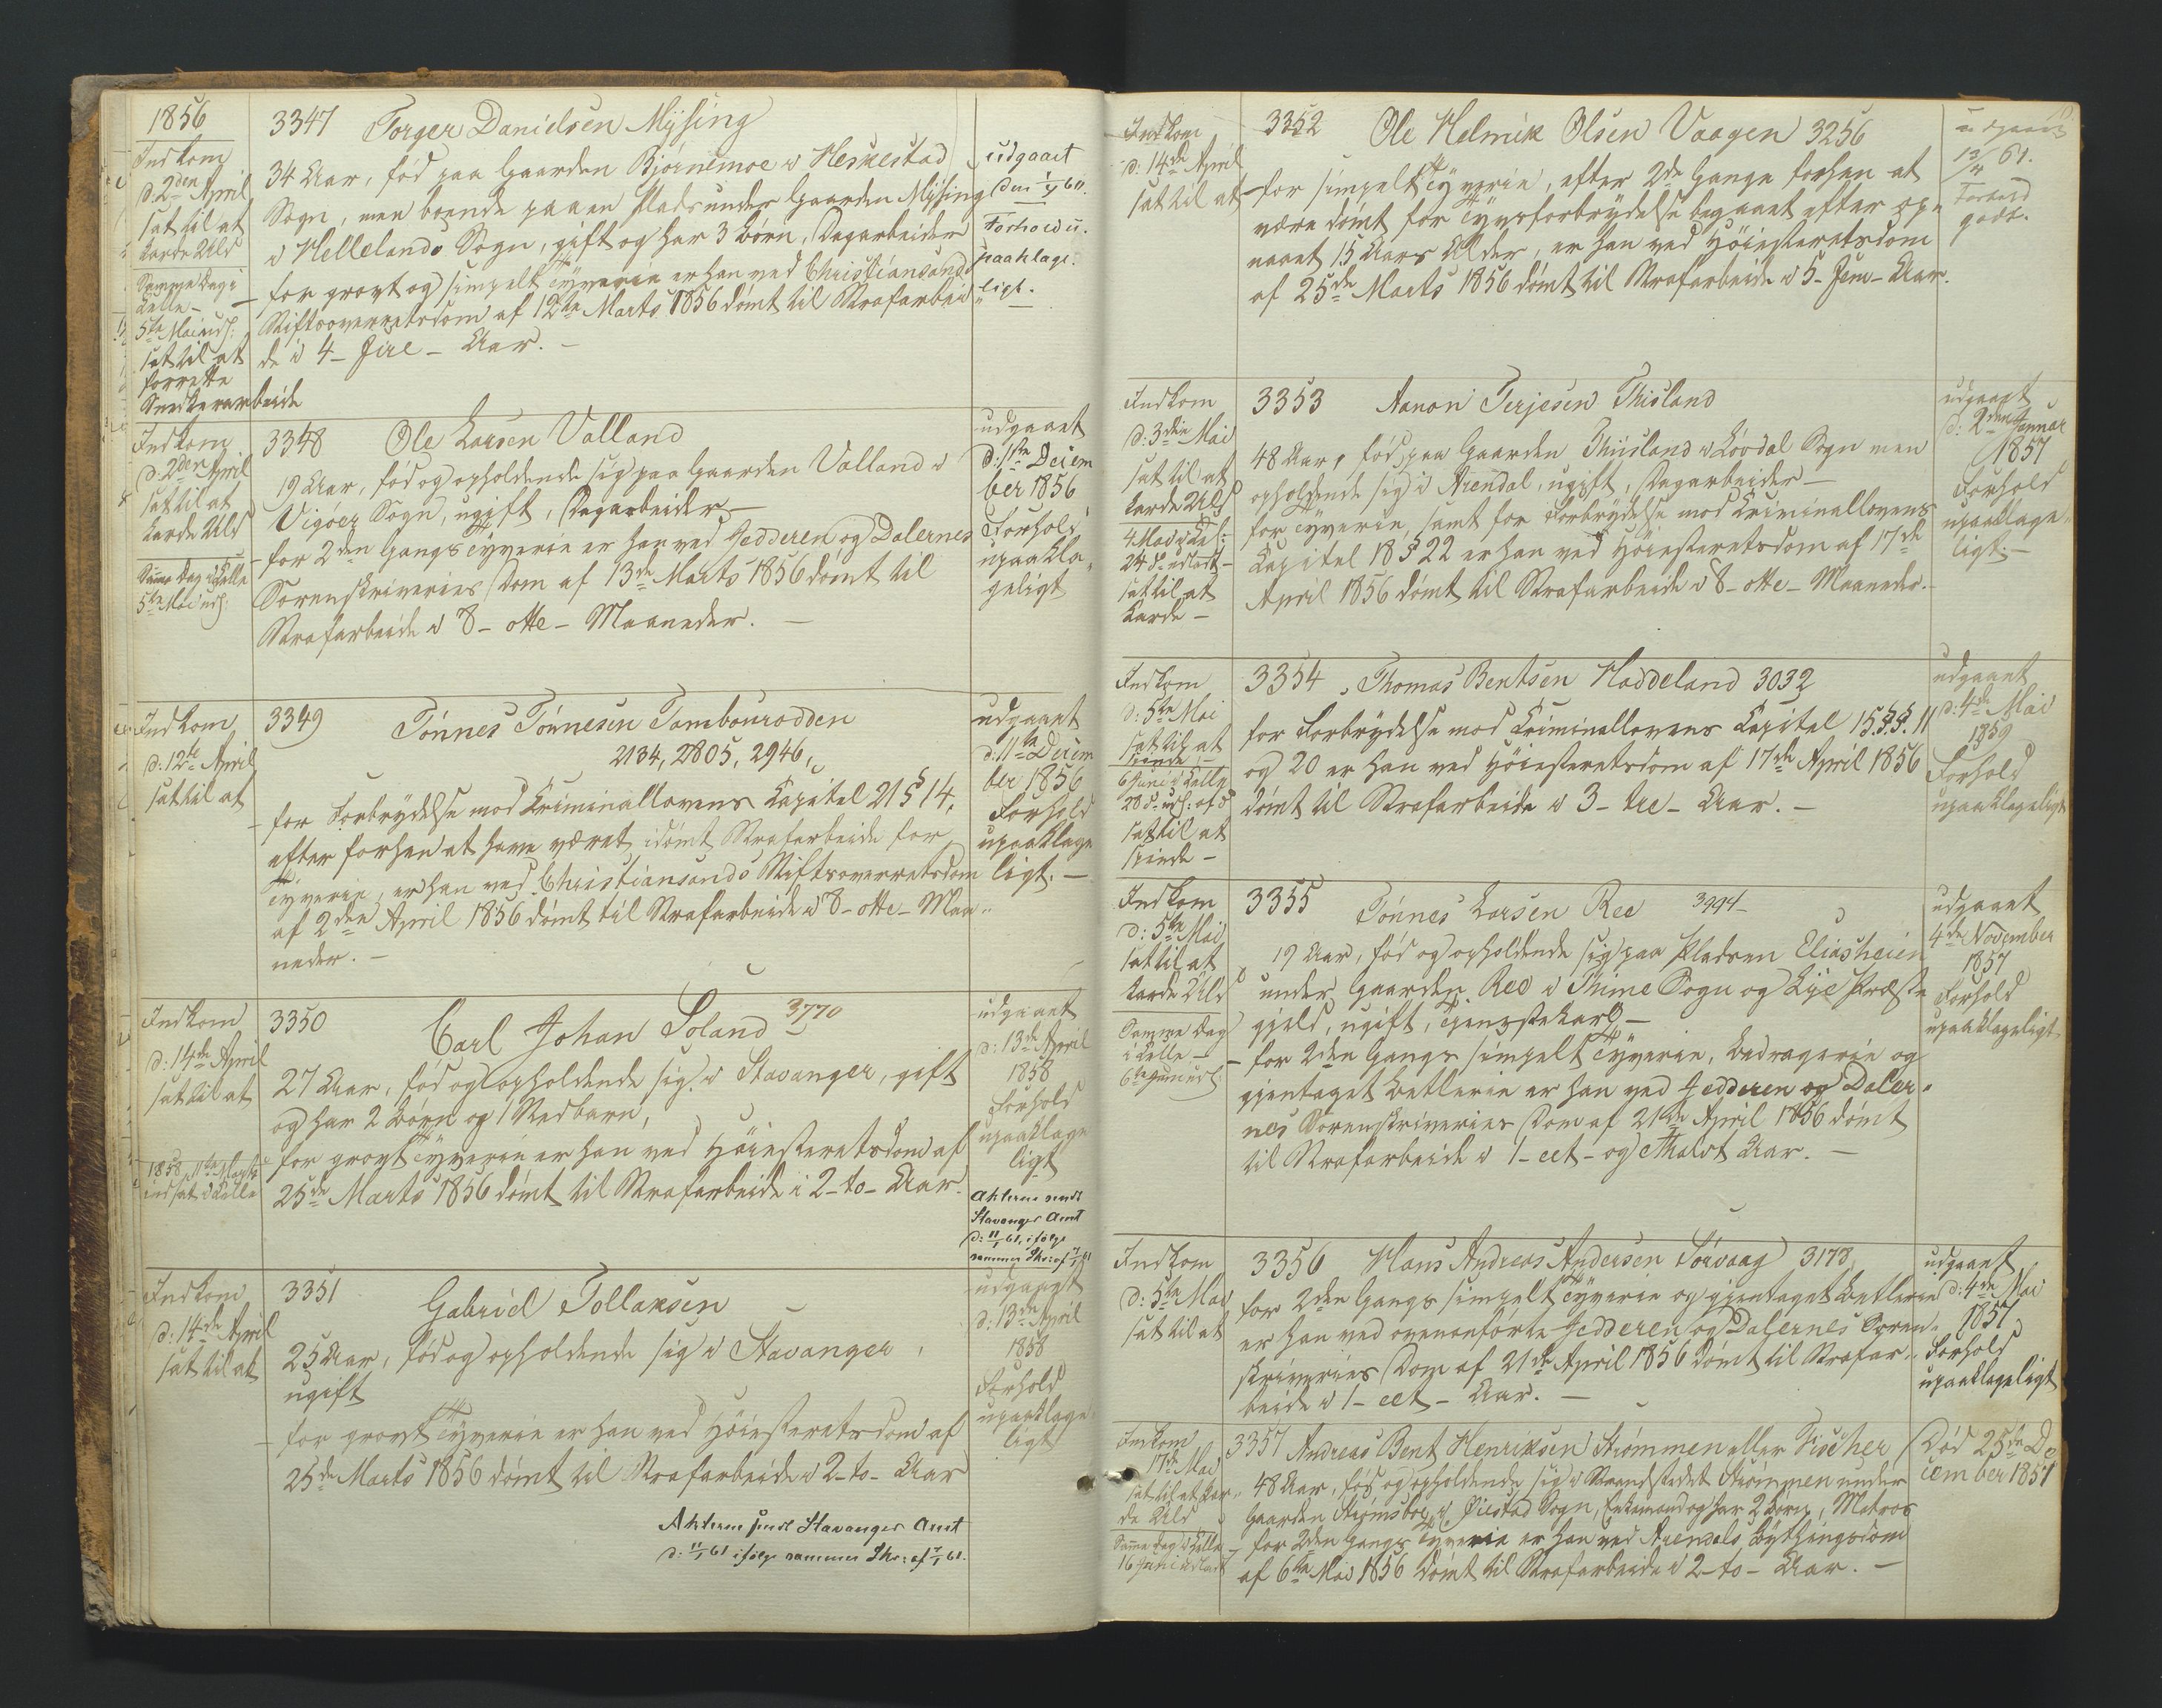 1856
Indkom
d. 2den April
sat til at
karde Uld
Samme Dag i
Celle -
5te Mai uds:
sat til at
forrette
Snedkerarbeide
3347 Torger Danielsen Mysing
34 Aar, fød paa Gaarden Bjørnemoe i Heskestad
Sogn, men boende paa en Plads under Gaarden Mysing
i Hellelands Sogn, gift og har 3 Børn, Dagarbeider
- for grovt og simpelt Tyverie er han ved Christiansands
Stiftsoverretsdom af 12te Marts 1856 dømt til Strafarbei„
de i 4 - fire - Aar. -
udgaaet
Forhold u„
paaklage„
ligt.
Indkom
d. 2den April
sat til at
karde Uld
Samme Dag i Celle
5te Mai uds:
3348 Ole Larsen Valland
19 Aar, fød og opholdende sig paa Gaarden Valland i
Vigøer Sogn, ugift, Dagarbeider -
- for 2den Gangs Tyverie er han ved Jedderen og Dalernes
Sorenskriveries Dom af 13de Marts 1856 dømt til
Strafarbeide i 8 - otte - Maaneder. -
udgaaet
d: 1ste Decem
ber 1856
Forhold
upaakla„
geligt
Indkom
d. 12te April
sat til at
3349 Tønnes Tønnesen Tambourodden
2134, 2805, 2946,
- for Forbrydelse mod Kriminallovens Kapitel 21 § 14,
efter forhen at have været idømt Strafarbeide for
Tyverie, er han ved Christiansands Stiftsoverretsdom
af 2den April 1856 dømt til Strafarbeide i 8 - otte - Maa„
neder. -
udgaaet
d: 11te Decem
ber 1856
Forhold
upaaklage
ligt. -
Indkom
d: 14de April
sat til at
1858, 11te Marts
indsat i Celle
3350 Carl Johan Soland 3770
27 Aar, fød og opholdende sig i Stavanger, gift
og har 2 Børn og 1 Stedbarn,
for grovt Tyverie er han ved Høiesteretsdom af
25de Marts 1856 dømt til Strafarbeide i 2 - to - Aar.
udgaaet
d: 13de April
1858
Forhold
upaaklage
ligt
Akterne sendt
Stavanger Amt
d: 11/1 61, ifølge
sammes Skr: af 7/1 61
Indkom
d: 14de April
sat til at
3351 Gabriel Tollaksen -
25 Aar, fød og opholdende sig i Stavanger,
ugift
- for grovt Tyverie er han ved Høiesteretsdom af
25de Marts 1856 dømt til Strafarbeide i 2 - to - Aar
Akterne sendt Stavanger Amt
d: 11/1 61 ifølge sammes Skr: af 7/1 61.
udgaaet
d: 13de April
1858
Forhold
upaaklage„
ligt
Indkom
d: 14de April
sat til at
3352 Ole Helmik Olsen Vaagen 3256
- for simpelt Tyverie, efter 2de Gange forhen at
være dømt for Tyvsforbrydelse begaaet efter op„
naaet 15 Aars Alder, er han ved Høiesteretsdom
af 25de Marts 1856 dømt til Strafarbeide i 5 - fem - Aar.
udgaaet
Forhold
godt.
Indkom
d: 3die Mai
sat til at
karde Uld
4 Mai i Cel:
24 d. udladt -
sat til at
karde -
3353 Aanon Terjesen Thisland
48 Aar, fød paa Gaarden Thiisland i Løvdal Sogn men
opholdende sig i Arendal, ugift, Dagarbeider -
for Tyverie, samt for Forbrydelse mod Kriminallovens
Kapitel 18 § 22 er han ved Høiesteretsdom af 17de
April 1856 dømt til Strafarbeide i 8 - otte - Maaneder.
udgaaet
d: 2den Januar
1857
Forhold
upaaklage„
ligt. -
Indkom
d: 5te Mai
sat til at
spinde -
6 Juni i Celle
28 d. uds: af d
sat til at
spinde -
3354 Thomas Bentsen Haddeland 3032
for Forbrydelse mod Kriminallovens Kapitel 15 §§ 11
og 20 er han ved Høiesteretsdom af 17de April 1856
dømt til Strafarbeide i 3 - tre - Aar. -
udgaaet
d: 4de Mai
1859
Forhold
upaaklageligt
Indkom
d: 5te Mai
sat til at
karde Uld
Samme Dag
i Celle -
6te Juni uds:
3355 Tønnes Larsen Ree 3994
19 Aar, fød og opholdende sig paa Pladsen Eliasheien
under Gaarden Ree i Thime Sogn og Lye Præste
gjeld, ugift, Tjenestekarl -
- for 2den Gangs simpelt Tyverie, Bedragerie og
gjentaget Betlerie er han ved Jedderen og Daler„
nes Sorenskriveries Dom af 21de April 1856 dømt
til Strafarbeide i 1 - eet - og et halvt Aar. -
udgaaet
4de November
1857
Forhold
upaaklageligt
Indkom
d: 5te Mai
sat til at
3356 Hans Andreas Andersen Sørvaag 3178
for 2den Gangs simpelt Tyverie og gjentaget Betlerie
er han ved ovenanførte Jedderen og Dalernes Soren„
skriveries Dom af 21de April 1856 dømt til Strafar„
beide i 1 - eet - Aar. -
udgaaet
d: 4de Mai
1857
Forhold
upaaklageligt
Indkom
17de Mai
sat til at kar„
de Uld
Samme Dag i Celle
16 Juni udladt
3357 Andreas Bent Henriksen Strømmen eller Fischer
48 Aar, fød og opholdende sig i Strandstedet Strømmen under
Gaarden Strømsboe i Øiestad Sogn, Enkemand og har 2 Børn, Matros
- for 2den Gangs Tyverie er han ved Arendals Bythingsdom
af 6te Mai 1856 dømt til Strafarbeide i 2 - to - Aar. -
Død 25de De
cember 1857